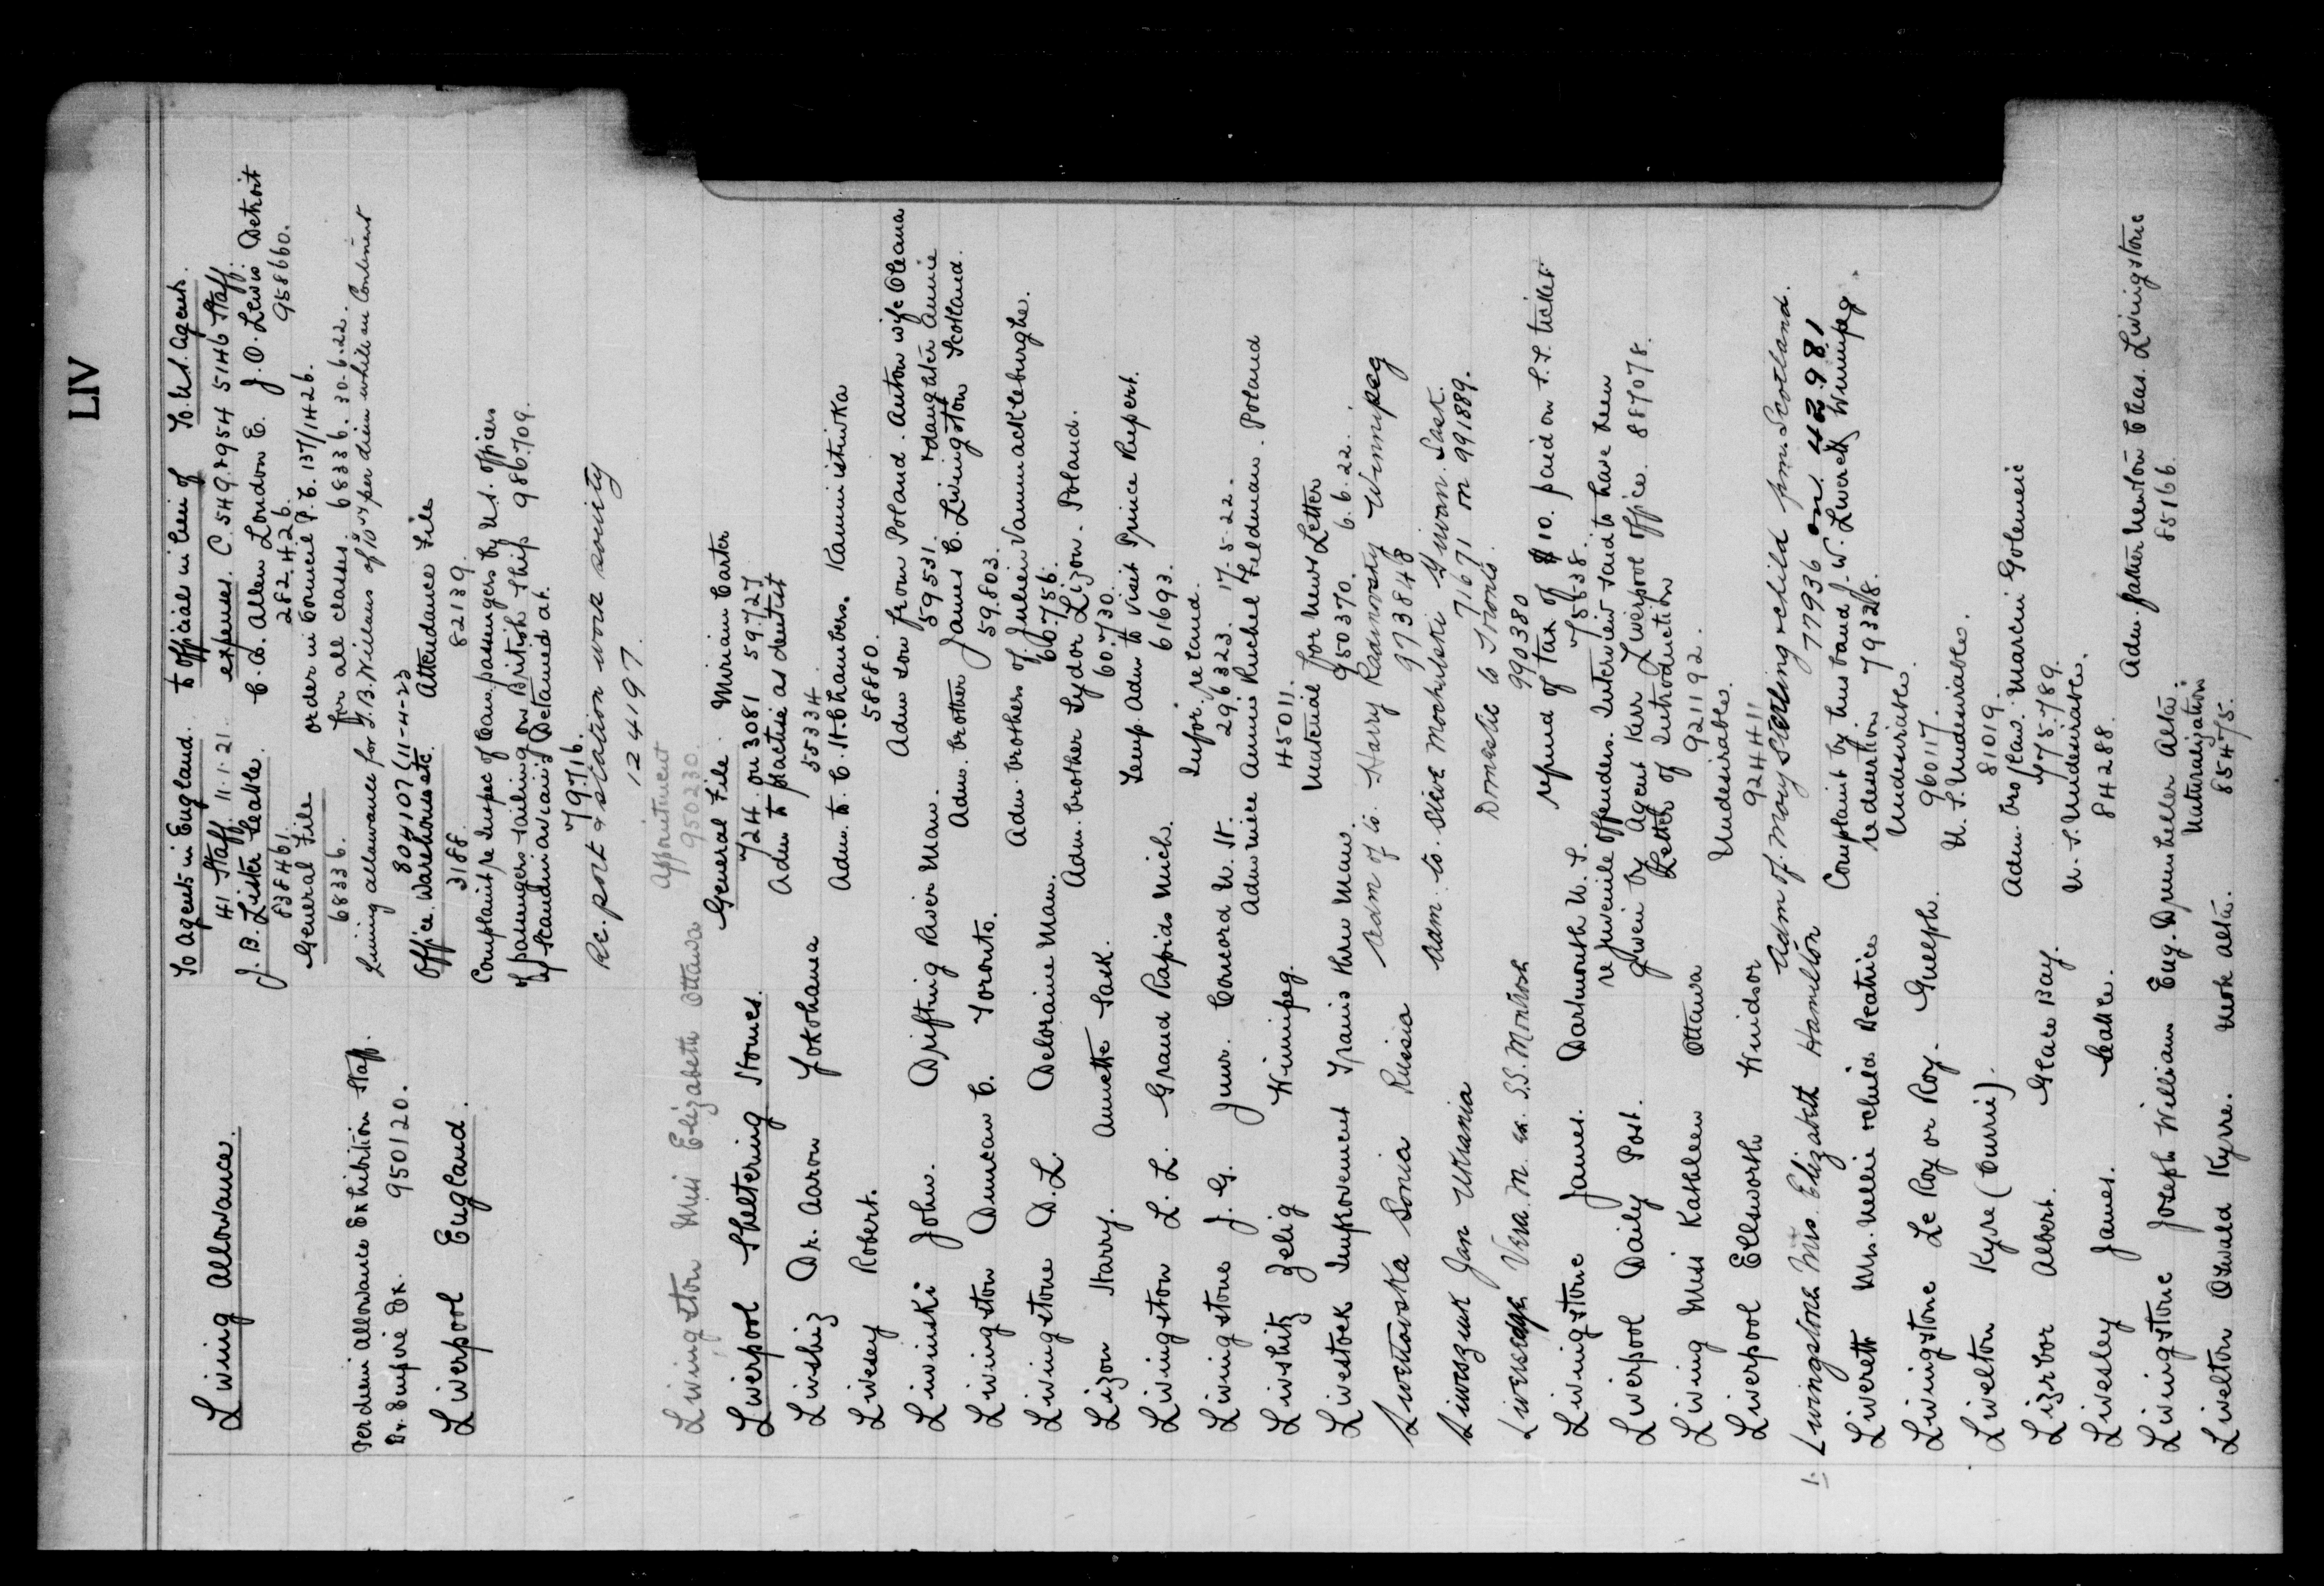 LIV
Living Allowance.
To Agents in England. to officials in lieu of To U.S. Agents.
41 Staff 11-1-21 expenses C. 549. & 954 5146 Staff.
J. B. Lister Seattle C. A. Allen London E. J. O. Lewis Detroit
83846. 282426. 958660.
General File order in Council P.C. 137/1426.
68336. for all classes. 68336. 30-6-22.
Per diem Allowance Exhibition Staff. Living allowance for J. B. Willans of 10 per diem while on Continent
Br. Empire Ex. 950120. 804107 (11-4-23
Liverpool England. Office Warehouse etc. Attendance File
3188 82139
Complaint re Inspec of Can. passengers by U.S. officers
of passengers sailing on British Ship 986.709.
of Scandinavians Detained at.
79.716.
Re. port & station work society
124197.
Livingston Miss Elizabeth Ottawa Appointment
950230
Liverpool Sheltering Homes. General File. Miriam Carter
724 on 3081 59.727
Livshiz Dr. Aaron Yokohama Adm to practise as dentist
55334
Livesey Robert. Adm. to. C. H. Chambers. Kaministikwa
58880.
Liwinski John. Drifting River Man. Adm son from Poland. Anton wife Oleana
59531. & daughter Annie
Livingston Duncan C. Toronto. Adm. brother James C. Livingston Scotland.
59.803.
Livingstone D. L. Deloraine Man. Adm. brothers of Julien Vanmackleburghe.
60.756.
Lizon Harry. Annette Sask. Adm. brother Sydor Lizon. Poland.
60.730.
Livingston L. L. Grand Rapids Mich. Temp. Adm to visit Prince Rupert.
61693.
Livingstone J. G. Junr. Concord N. H. Infor. re land.
29.6323. 17-5-22.
Livshitz Zelig Winnipeg. Adm niece Annie Ruchel Feldman. Poland
45011.
Livestock Improvement Trains thru Man. Material for News Letter
950370. 6.6.22.
Liwentowska Sonia Russia Adm of to. Harry Radinovsky Winnipeg
973848
Liwoszuk Jan Ukrania Adm. to. Steve Mochulski Swan. Sask.
71671 on 991889.
Livesedge Vera. M. ex. S.S. Montrose Domestic to Toronto.
990380
Livingstone James. Dartmouth N. S. refund of tax of $10. paid on S.S. ticket
75538.
Liverpool Daily Post. re juvenile offenders. Interview said to have been
given by Agent Kerr Liverpool office. 887078.
Living Miss Kathleen Ottawa Letter of Introduction
921192.
Liverpool Ellsworth Windsor Undesirables.
92441
1. Livingstone Mrs. Elizabeth Hamilton Adm of May Sterling & child frm. Scotland.
77936 on 42981
Liverett Mrs. Nellie & child Beatrice Complaint by husband J. W. Liverett Winnipeg.
re desertion 79328.
Livingstone Le Roy or Roy. Guelph. Undesirable.
960117.
Livelton Kyre (Currie). U. S. Undesirables.
81019.
Lizrbor Albert. Glace Bay. Adm. bro/law. Marcin Golemeie
475.789.
Livesley James. Seattle. U. S. Undesirable.
84288.
Livingstone Joseph William Eug. Drumheller Alta. Adm. father Newton Chas. Livingstone
85166.
Livelton Oswald Kyrre. Naturalization
85475.